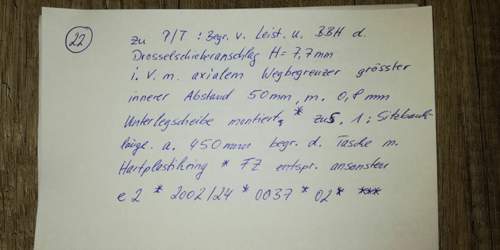 22
zu P/T : Begr. v. Leist. u. BBH d.
Drosselschieberanschlag H = 7,7mm
i. V. m. axialem Wegbegrenzer grösster
innerer Abstand 50mm, m. 0,8 mm
Unterlegscheibe montiert, * zu S. 1 : Sitzbank-
länge a. 450mm begr. d. Tasche m.
Hartplastikring * FZ entspr. ansonsten
e2 * 2002/24 * 0037 * 02 * ***